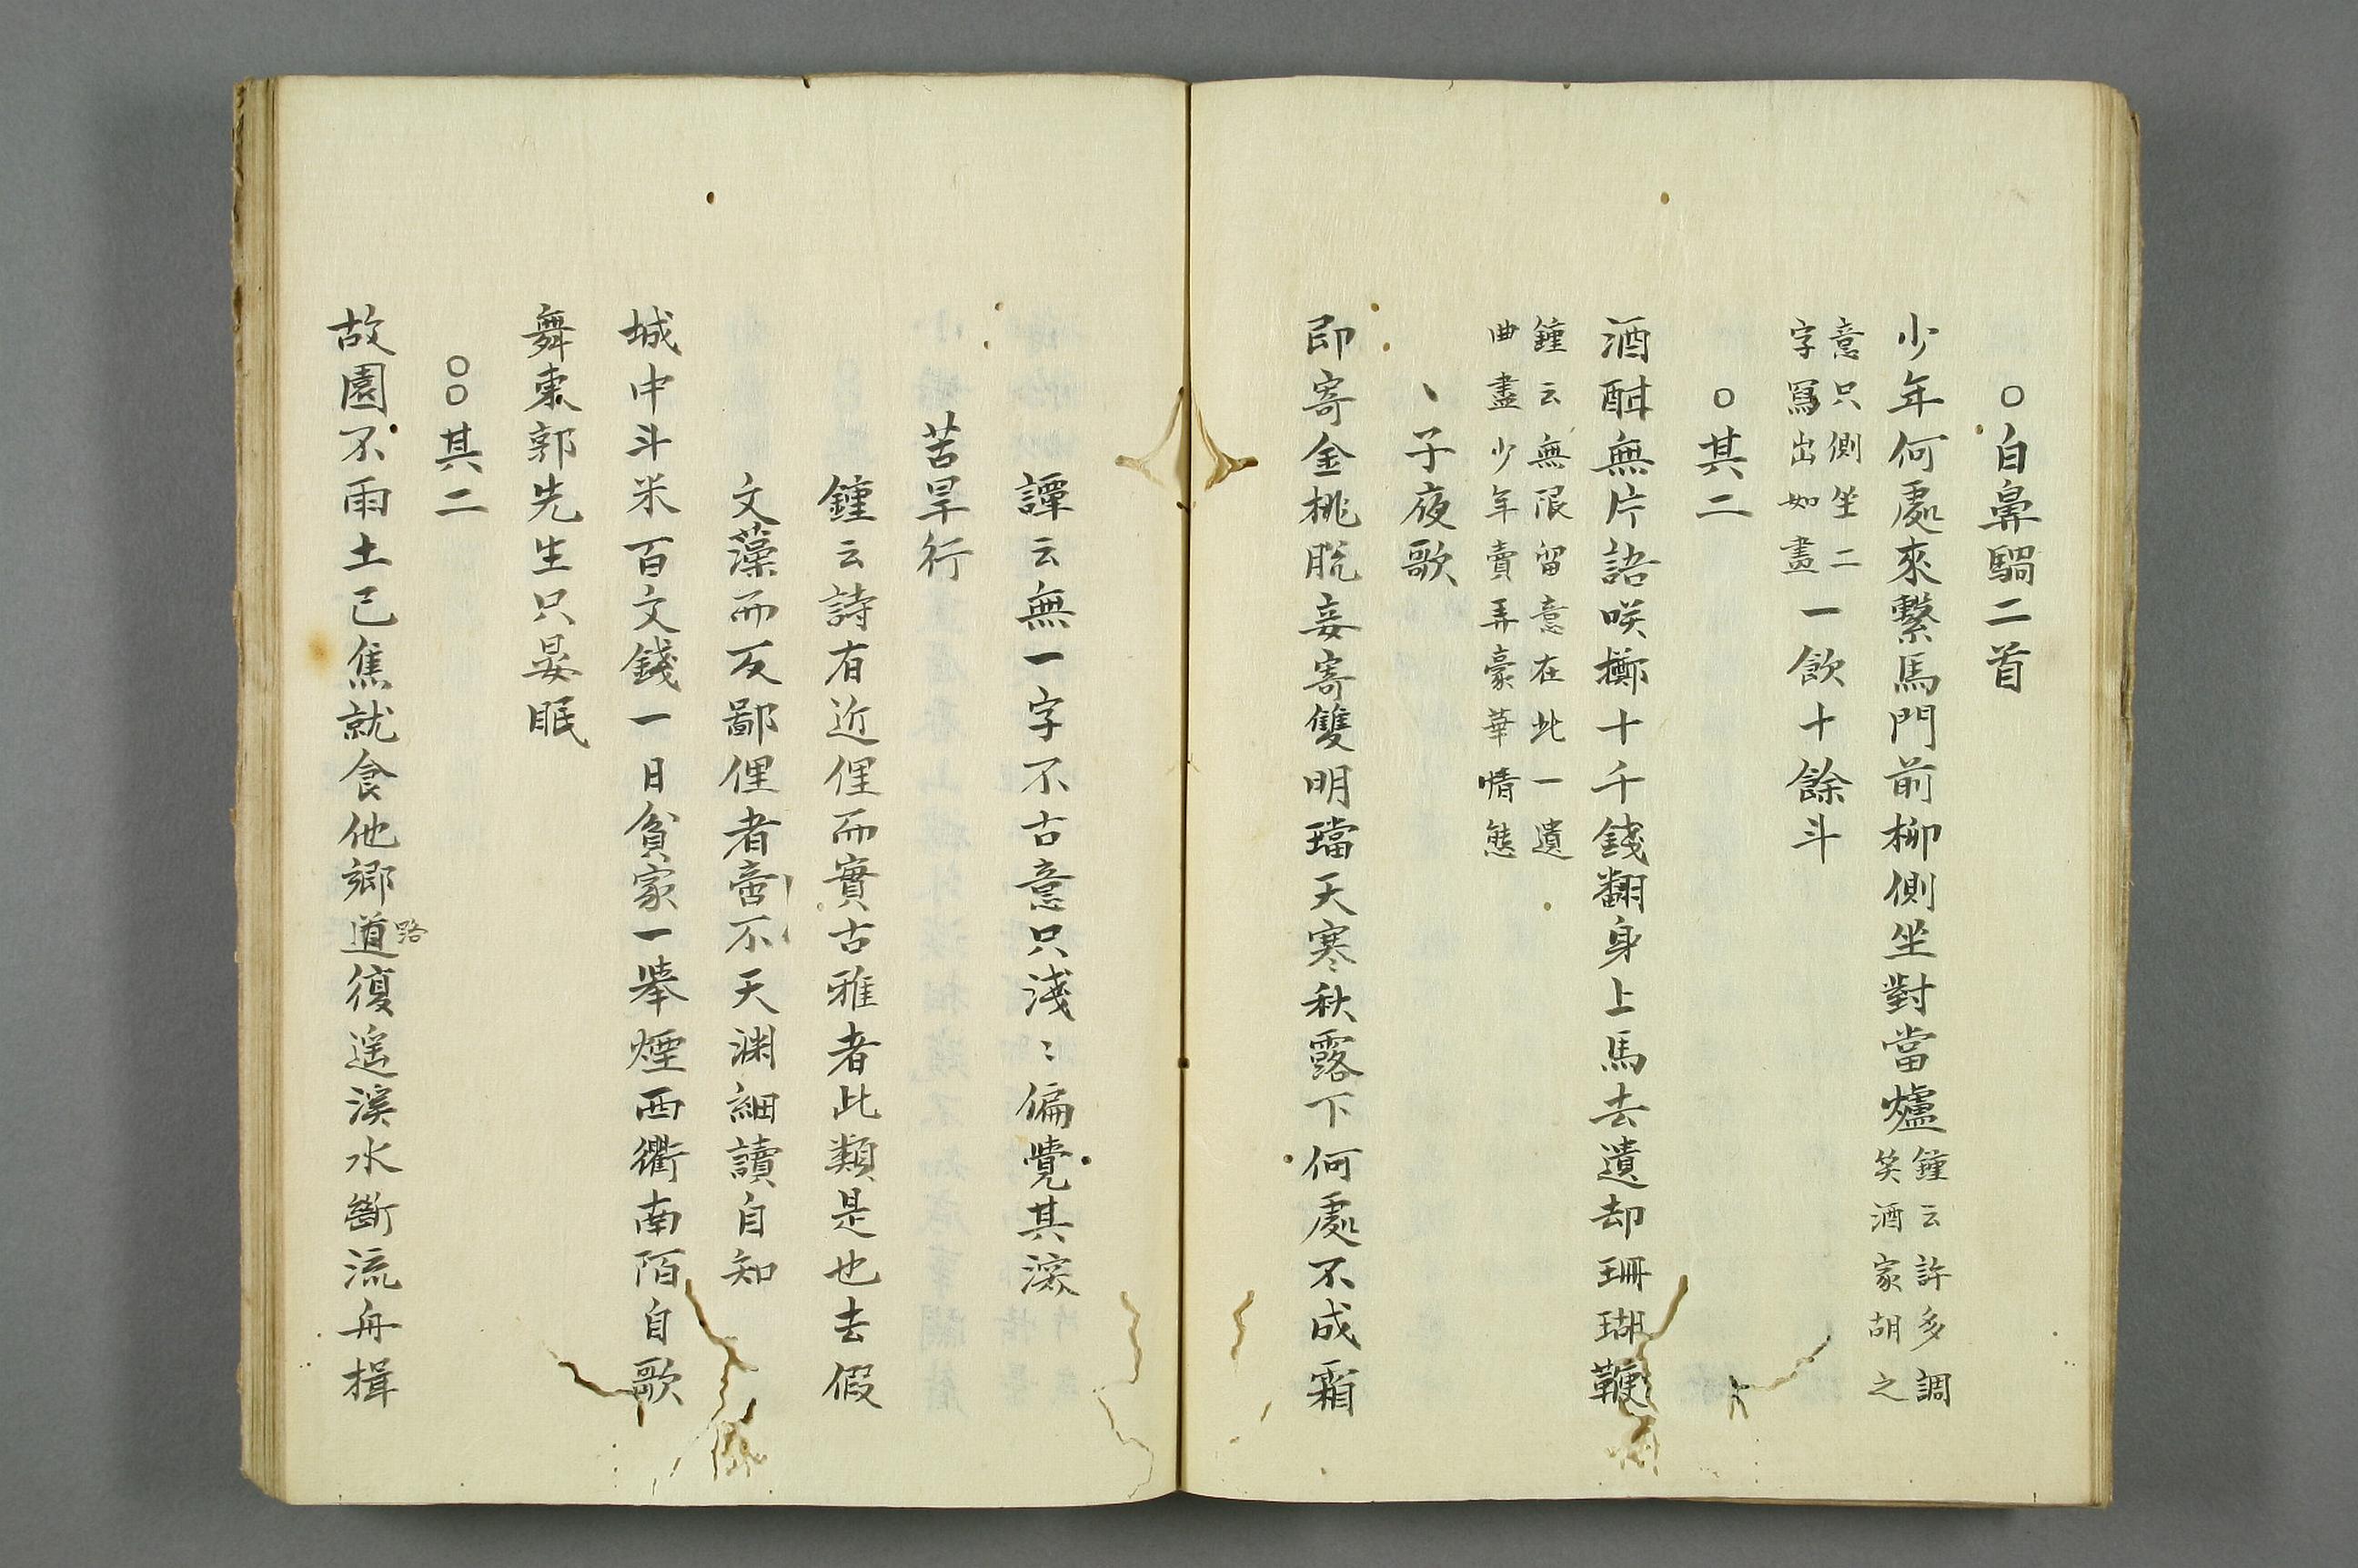 ○白鼻騧二首
少年何處來繫馬門前柳側坐對當爐鍾云許多調
笑酒家胡之
意只側坐二
字寫出如畫一飲十餘斗
○其二
酒酣無片語咲擲十千錢翻身上馬去遺却珊瑚鞭
鍾云無限留意在此一遺
曲盡少年賣弄豪華情態
丶子夜歌
郎寄金桃脫妾寄雙明璫天寒秋露下何處不成霜
譚云無一字不古意只淺〻偏覺其深
苦旱行
鍾云詩有近俚而實古雅者此類是也去假
文藻而反鄙俚者啻不天渊細讀自知
城中斗米百文錢一日貧家一舉煙西衢南陌自歌
舞東郭先生只晏眠
○○其二
故園不雨土已焦就食他鄉道復遥溪水斷流舟楫
路